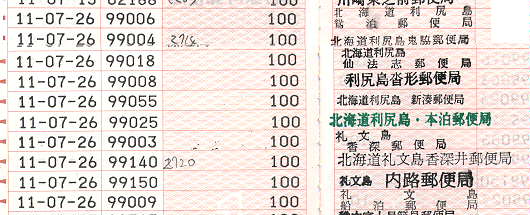 11-07-26 99006 100 北海道利尻島
鴛泊郵便局
11-07-26 99004 100 北海道利尻島鬼脇郵便局
11-07-26 99018 100 北海道利尻島
仙法志郵便局
11-07-26 99008 100 利尻島沓形郵便局
11-07-26 99055 100 北海道利尻島 新湊郵便局
11-07-26 99025 100 北海道利尻島・本泊郵便局
11-07-26 99003 100 礼文島
香深郵便局
11-07-26 99140 2720 100 北海道礼文島香深井郵便局
11-07-26 99150 100 礼文島 内路郵便局
11-07-26 99009 100 礼文島
船泊郵便局